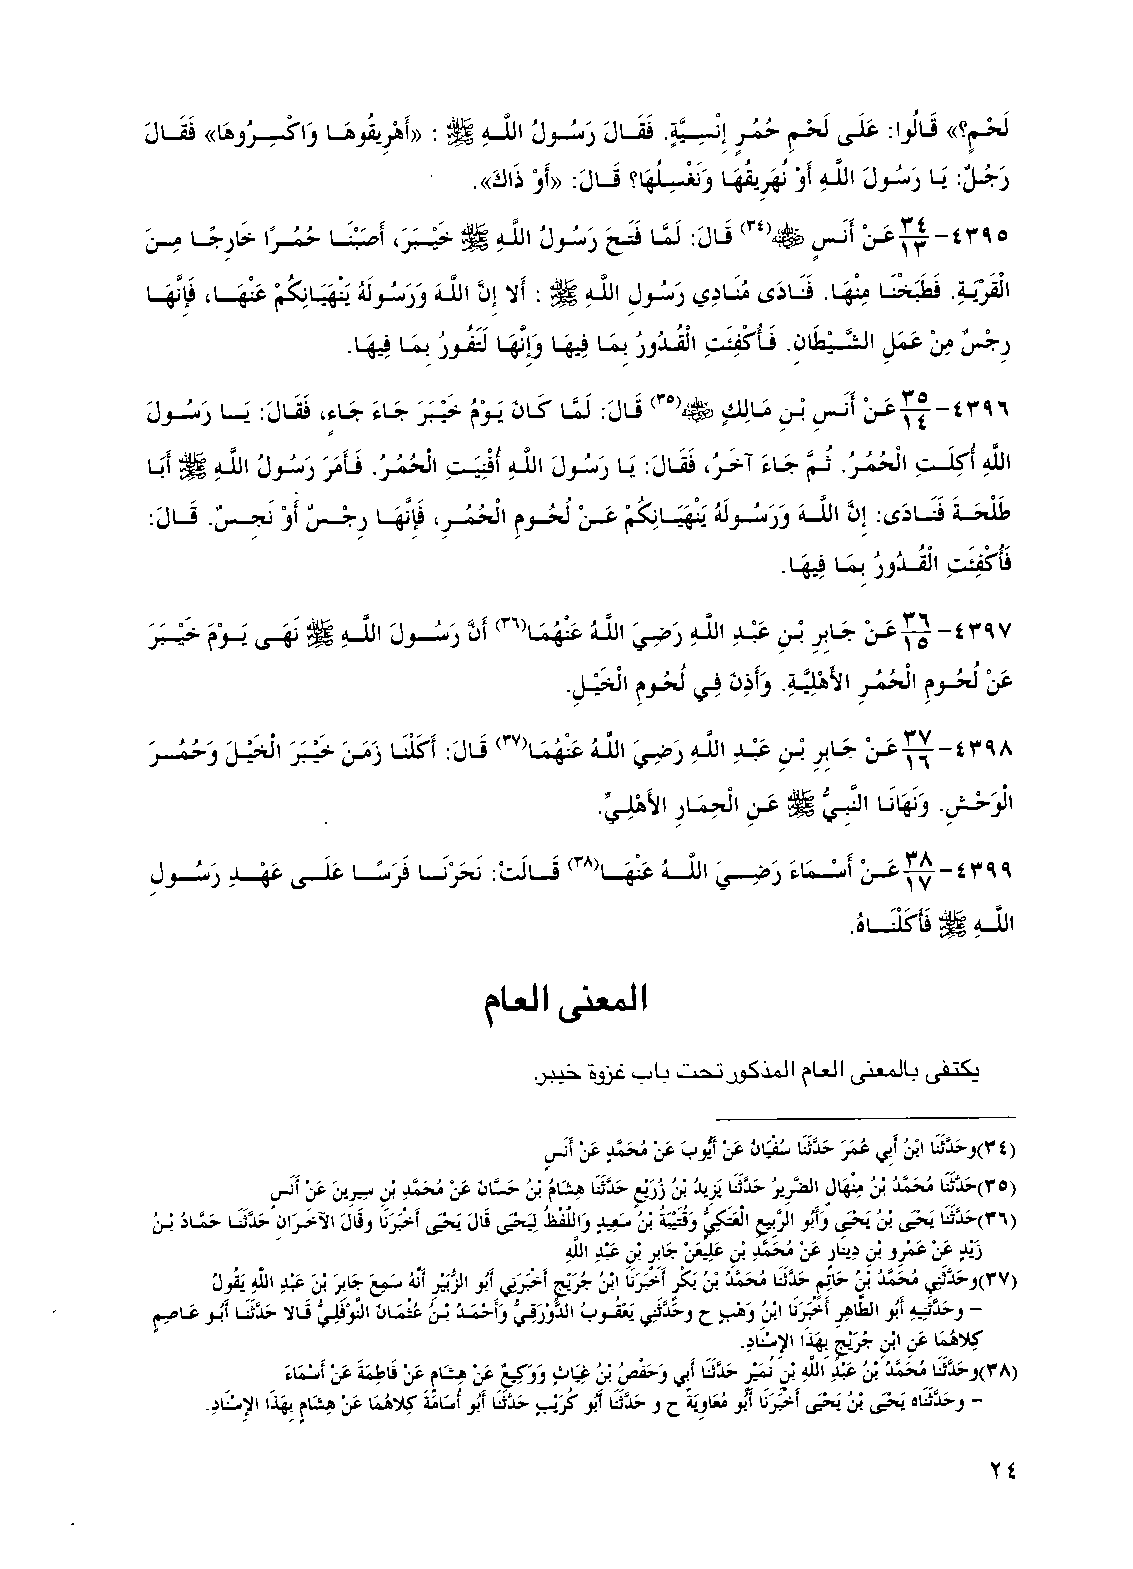 لَحْمٍ؟» قَالُوا: عَلَى لَحْمِ حُمُرٍ إِنْسِيَّةٍ. فَقَالَ رَسُولُ اللَّهِ ﷺ : «أَهْرِيقُوهَا وَاكْسِرُوهَا» فَقَالَ
رَجُلٌ: يَا رَسُولَ اللَّهِ أَوْ نُهَرِيقُهَا وَنَغْسِلُهَا؟ قَالَ: «أَوْ ذَاكَ».
٤٣٩٥- ٣٤/١٣ عَنْ أَنَسٍ ﷺ(٣٤) قَالَ: لَمَّا فَتَحَ رَسُولُ اللَّهِ ﷺ خَيْبَرَ، أَصَبْنَا حُمُرًا خَارِجًا مِنَ
الْقَرْيَةِ. فَطَبَخْنَا مِنْهَا. فَنَادَى مُنَادِي رَسُولِ اللَّهِ ﷺ : أَلا إِنَّ اللَّهَ وَرَسُولَهُ يَنْهَيَانِكُمْ عَنْهَا، فَإِنَّهَا
رِجْسٌ مِنْ عَمَلِ الشَّيْطَانِ. فَأُكْفِئَتِ الْقُدُورُ بِمَا فِيهَا وَإِنَّهَا لَتَفُورُ بِمَا فِيهَا.
٤٣٩٦- ٣٥/١٤ عَنْ أَنَسِ بْنِ مَالِكٍ ﷺ(٣٥) قَالَ: لَمَّا كَانَ يَوْمُ خَيْبَرَ جَاءَ جَاءٍ، فَقَالَ: يَا رَسُولَ
اللَّهِ أُكِلَتِ الْحُمُرُ. ثُمَّ جَاءَ آخَرُ، فَقَالَ: يَا رَسُولَ اللَّهِ أُفْنِيَتِ الْحُمُرُ. فَأَمَرَ رَسُولُ اللَّهِ ﷺ أَبَا
طَلْحَةَ فَنَادَى: إِنَّ اللَّهَ وَرَسُولَهُ يَنْهَيَانِكُمْ عَنْ لُحُومِ الْحُمُرِ، فَإِنَّهَا رِجْسٌ أَوْ نَجِسٌ. قَالَ:
فَأُكْفِئَتِ الْقُدُورُ بِمَا فِيهَا.
٤٣٩٧- ٣٦/١٥ عَنْ جَابِرِ بْنِ عَبْدِ اللَّهِ رَضِيَ اللَّهُ عَنْهُمَا(٣٦) أَنَّ رَسُولَ اللَّهِ ﷺ نَهَى يَوْمَ خَيْبَرَ
عَنْ لُحُومِ الْحُمُرِ الأَهْلِيَّةِ. وَأَذِنَ فِي لُحُومِ الْخَيْلِ.
٤٣٩٨- ٣٧/١٦ عَنْ جَابِرِ بْنِ عَبْدِ اللَّهِ رَضِيَ اللَّهُ عَنْهُمَا(٣٧) قَالَ: أَكَلْنَا زَمَنَ خَيْبَرَ الْخَيْلَ وَحُمُرَ
الْوَحْشِ. وَنَهَانَا النَّبِيُّ ﷺ عَنِ الْحِمَارِ الأَهْلِيِّ.
٤٣٩٩- ٣٨/١٧ عَنْ أَسْمَاءَ رَضِيَ اللَّهُ عَنْهَا(٣٨) قَالَتْ: نَحَرْنَا فَرَسًا عَلَى عَهْدِ رَسُولِ
اللَّهِ ﷺ فَأَكَلْنَاهُ.
المعنى العام
يكتفى بالمعنى العام المذكور تحت باب غزوة خيبر.
(٣٤) وحَدَّثَنَا ابْنُ أَبِي عُمَرَ حَدَّثَنَا سُفْيَانُ عَنْ أَيُّوبَ عَنْ مُحَمَّدٍ عَنْ أَنَسٍ
(٣٥) حَدَّثَنَا مُحَمَّدُ بْنُ مِنْهَالٍ الضَّرِيرُ حَدَّثَنَا يَزِيدُ بْنُ زُرَيْعٍ حَدَّثَنَا هِشَامُ بْنُ حَسَّانَ عَنْ مُحَمَّدِ بْنِ سِيرِينَ عَنْ أَنَسٍ
(٣٦) حَدَّثَنَا يَحْيَى بْنُ يَحْيَى وَأَبُو الرَّبِيعِ الْعَتَكِيُّ وَقُتَيْبَةُ بْنُ سَعِيدٍ وَاللَّفْظُ لِيَحْيَى قَالَ يَحْيَى أَخْبَرَنَا وقَالَ الآخَرَانِ حَدَّثَنَا حَمَّادُ بْنُ
زَيْدٍ عَنْ عَمْرِو بْنِ دِينَارٍ عَنْ مُحَمَّدِ بْنِ عَلِيٍّعَنْ جَابِرِ بْنِ عَبْدِ اللَّهِ
(٣٧) وحَدَّثَنِي مُحَمَّدُ بْنُ حَاتِمٍ حَدَّثَنَا مُحَمَّدُ بْنُ بَكْرٍ أَخْبَرَنَا ابْنُ جُرَيْجٍ أَخْبَرَنِي أَبُو الزُّبَيْرِ أَنَّهُ سَمِعَ جَابِرَ بْنَ عَبْدِ اللَّهِ يَقُولُ
- وحَدَّثَنِيهِ أَبُو الطَّاهِرِ أَخْبَرَنَا ابْنُ وَهْبٍ ح وحَدَّثَنِي يَعْقُوبُ الدَّوْرَقِيُّ وَأَحْمَدُ بْنُ عُثْمَانَ النَّوْفَلِيُّ قَالا حَدَّثَنَا أَبُو عَاصِمٍ
كِلاهُمَا عَنِ ابْنِ جُرَيْجٍ بِهَذَا الإِسْنَادِ.
(٣٨) وحَدَّثَنَا مُحَمَّدُ بْنُ عَبْدِ اللَّهِ بْنِ نُمَيْرٍ حَدَّثَنَا أَبِي وَحَفْصُ بْنُ غِيَاثٍ وَوَكِيعٌ عَنْ هِشَامٍ عَنْ فَاطِمَةَ عَنْ أَسْمَاءَ
- وحَدَّثَنَاه يَحْيَى بْنُ يَحْيَى أَخْبَرَنَا أَبُو مُعَاوِيَةَ ح و حَدَّثَنَا أَبُو كُرَيْبٍ حَدَّثَنَا أَبُو أُسَامَةَ كِلاهُمَا عَنْ هِشَامٍ بِهَذَا الإِسْنَادِ.
٢٤